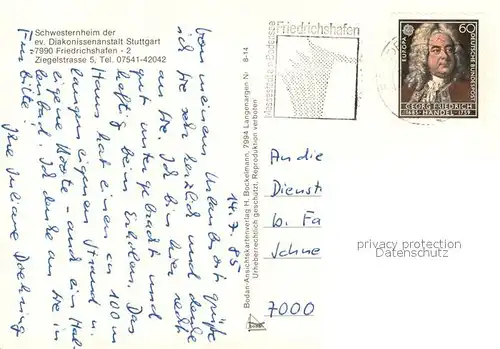 Schwesternheim der
ev. Diakonissenanstalt Stuttgart
7990 Friedrichshafen - 2
Ziegelstrasse 5, Tel. 07541-42042
14.7.85
Von meinem Urlaubsort grüße
ich Sie sehr herzlich und denke
an Sie. Ich bin hier recht
gut untergebracht und
kräftig beim Erholen. Das
Haus hat einen ca 100 m
langen eigenen Strand u.
eigene Boote - und ein Hal-
lenbad. Ich denke an Sie in
Fürbitte!
Ihre Juliane Doehring
Bodan-Ansichtskartenverlag H. Bockelmann, 7994 Langenargen Nr. 8-14
Urheberrechtlich geschützt. Reproduktion verboten
Friedrichshafen
Messestadt am Bodensee
EUROPA
60
DEUTSCHE BUNDESPOST
GEORG FRIEDRICH
HÄNDEL
1685-1759
An die
Dienst
b. Fa
Schne
7000
privacy protection
Datenschutz